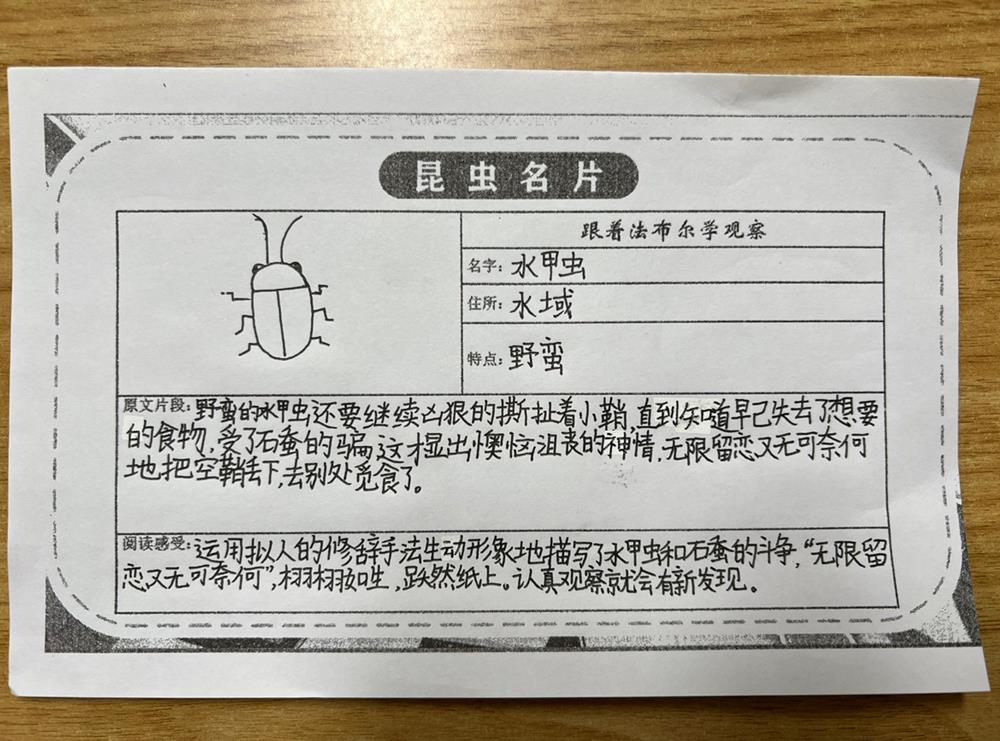 昆虫名片
跟着法布尔学观察
名字：水甲虫
住所：水域
特点：野蛮
原文片段：野蛮的水甲虫还要继续凶狠的撕扯着小鞘，直到知道早已失去了想要
的食物，受了石蚕的骗，这才显出懊恼沮丧的神情，无限留恋又无可奈何
地把空鞘丢下，去别处觅食了。
阅读感受：运用拟人的修辞手法生动形象地描写了水甲虫和石蚕的斗争，“无限留
恋又无可奈何”，栩栩如生，跃然纸上。认真观察就会有新发现。